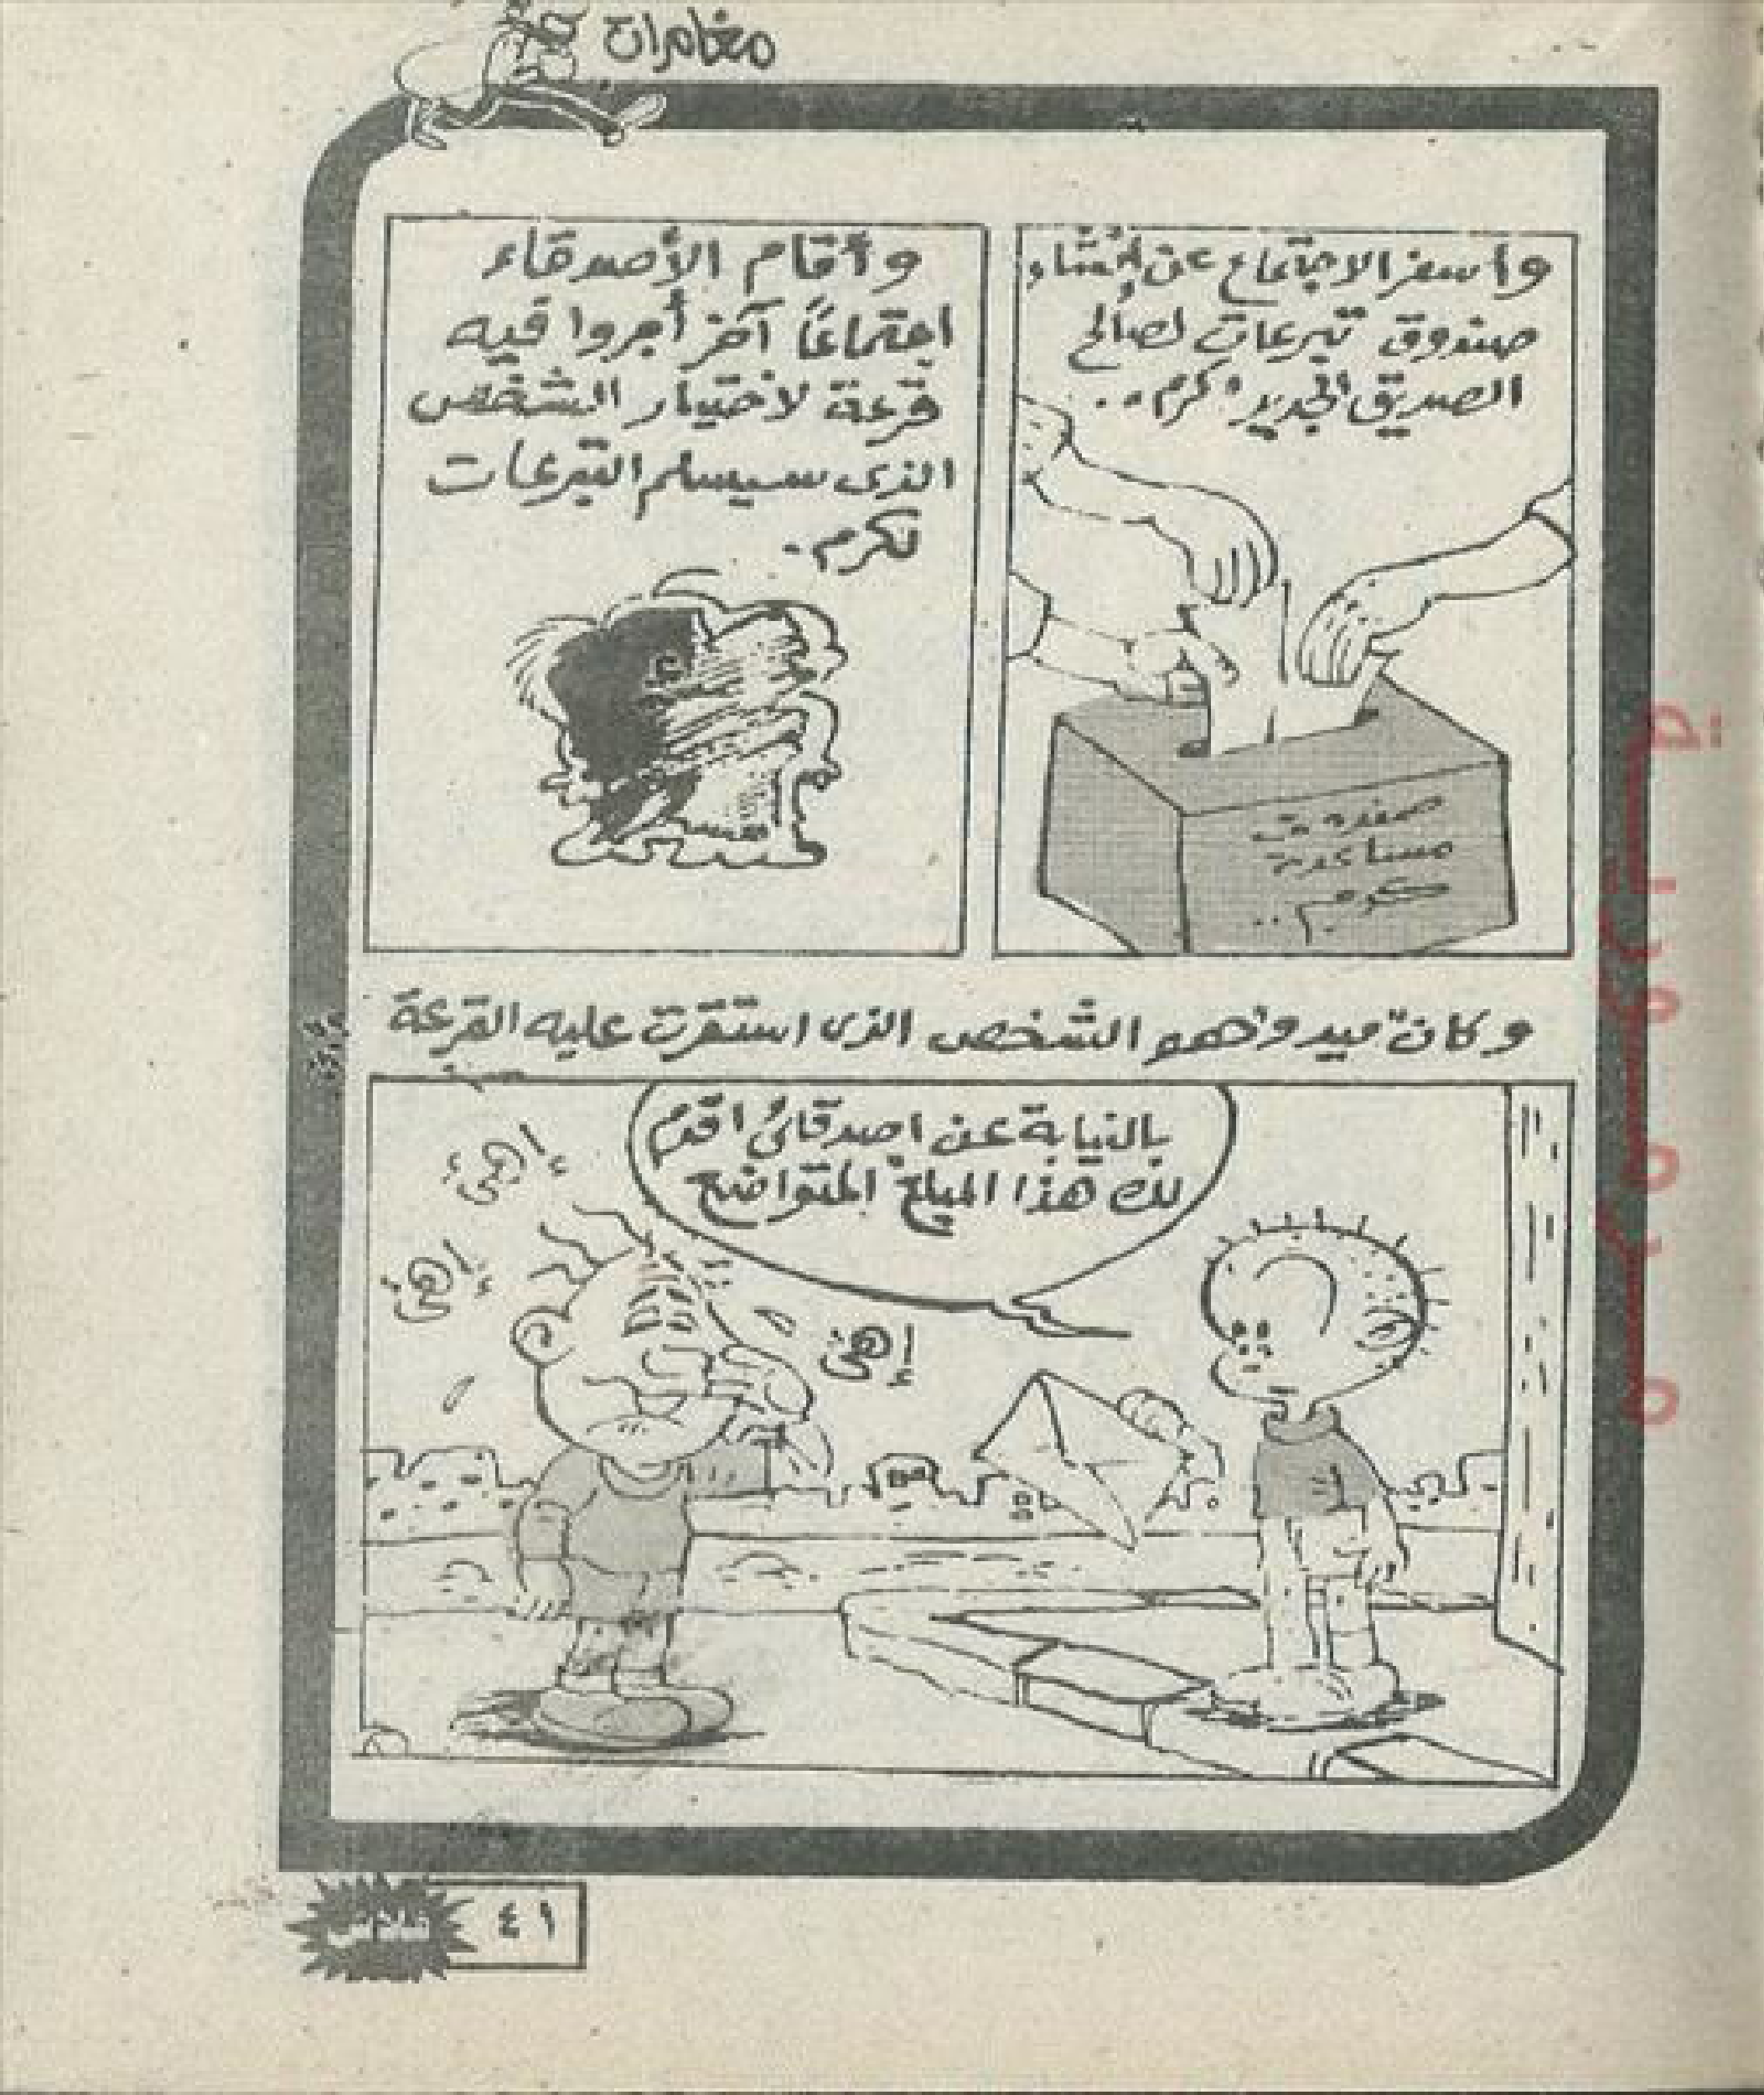 مغامرات
وأسفر الاجتماع عن إنشاء
صندوق تبرعات لصالح
الصديق الجديد "كرم" ..
صندوق
مساعدة
كرم ..
وأقام الأصدقاء
اجتماعًا آخر أجروا فيه
قرعة لاختيار الشخص
الذى سيسلم التبرعات
لكرم .
وكان ميدو هو الشخص الذى استقرت عليه القرعة
بالنيابة عن اصدقائى اقدم
لك هذا المبلغ المتواضع
إهئ
إهئ
إهئ
٤١